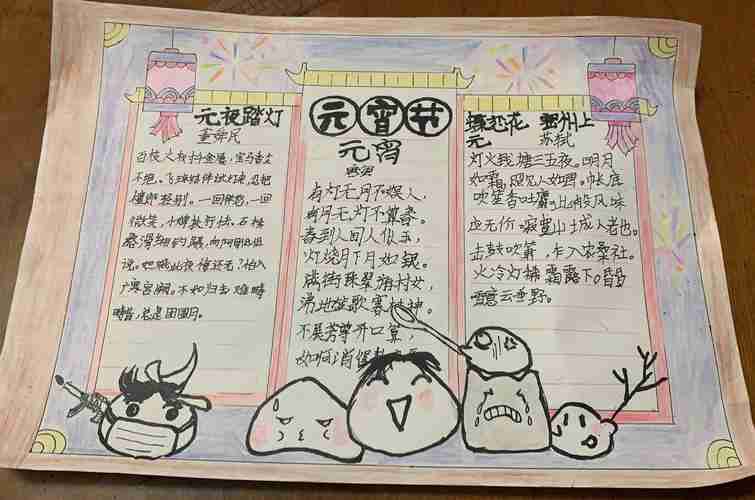 元夜踏灯
董舜民
百枝火树千金屧,宝马香尘
不绝。飞琼结伴试灯来,忍把
檀郎轻别。一回佯怒,一回
微笑,小婢扶行怯。石桥
路滑缃钩蹑,向阿母低低
说。姮娥此夜悔还无?怕入
广寒宫阙。不如归去难畴
畴昔,总是团圆月。
元宵节
元宵
唐寅
有灯无月不娱人,
有月无灯不算春。
春到人间人似玉,
灯烧月下月如银。
满街珠翠游村女,
沸地笙歌赛社神。
不展芳尊开口笑,
如何消得
蝶恋花 密州上
元 苏轼
灯火钱塘三五夜。明月
如霜,照见人如画。帐底
吹笙香吐麝,此般风味
应无价。寂寞山城人老也。
击鼓吹箫,乍入农桑社。
火冷灯稀霜露下。昏昏
雪意云垂野。